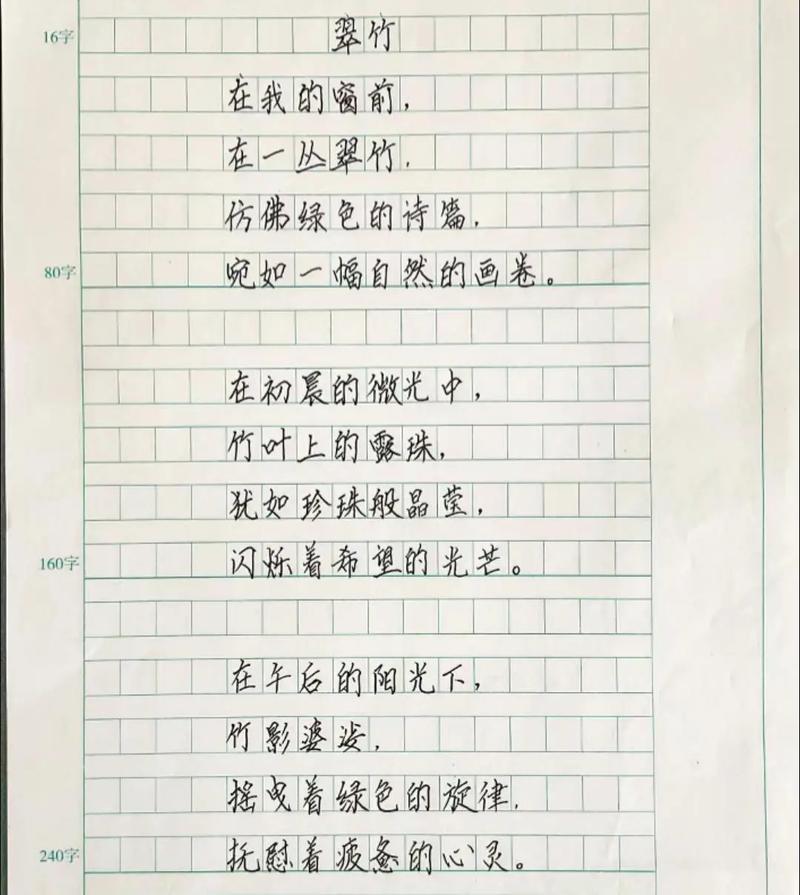 翠竹
16字
在我的窗前,
在一丛翠竹.
仿佛绿色的诗篇.
宛如一幅自然的画卷。
80字
在初晨的微光中,
竹叶上的露珠,
犹如珍珠般晶莹,
闪烁着希望的光芒。
160字
在午后的阳光下,
竹影婆娑.
摇曳着绿色的旋律.
抚慰着疲惫的心灵。
240字